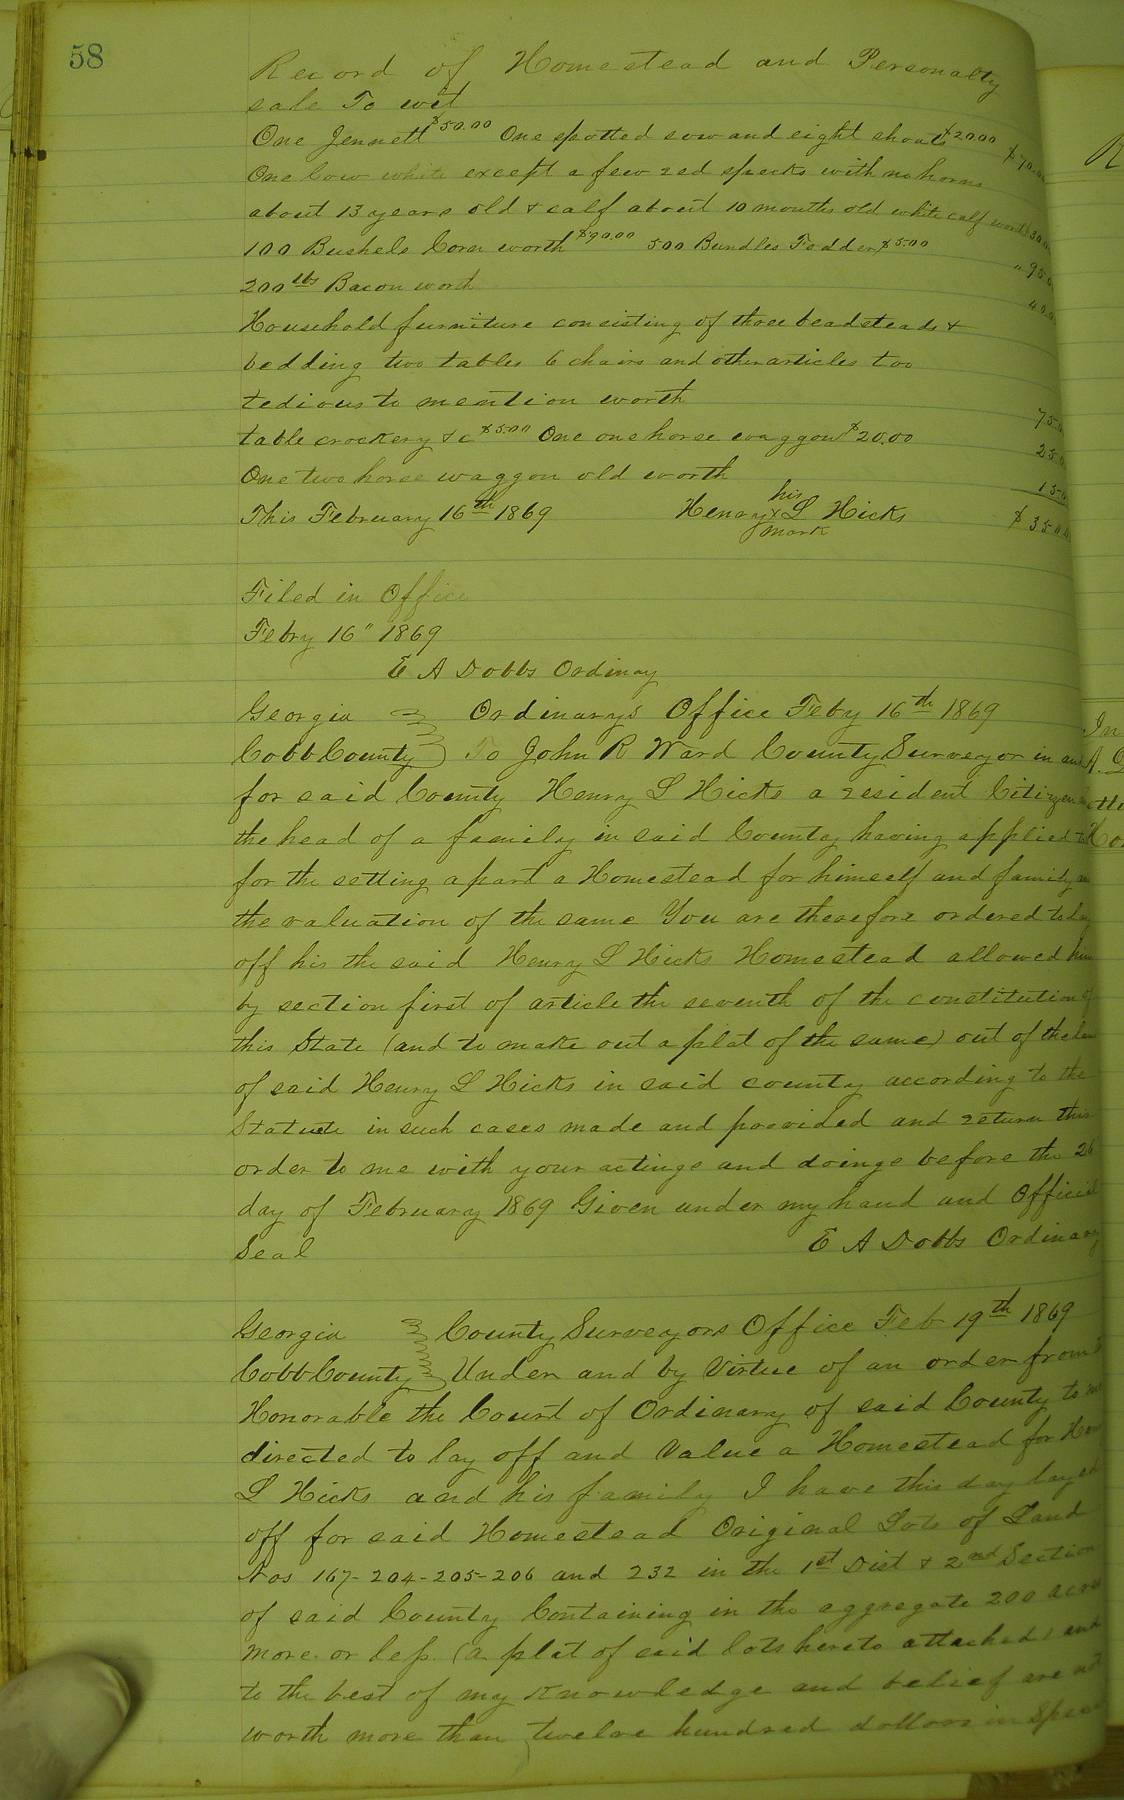 58
Record of Homestead and Personalty
sale To wit
One Jennett $50.00 One spotted sow and eight shoats $20.00 $70.00
One Cow white except a few red specks with no horns
about 13 years old & calf about 10 months old white calf worth 30.00
100 Bushels Corn worth $90.00 500 Bundles Fodder $5.00 " 95.0
200 lbs Bacon worth 40.0
Household furniture consisting of three beadsteads &
bedding two tables 6 chairs and other articles too
tedious to mention worth 75.0
table crockery &c $5.00 One one horse waggon $20.00 25.0
One two horse waggon old worth 15.0
This February 16th 1869 Henry his x mark L Hicks $350.0
Filed in Office
Febry 16" 1869
E A Dobbs Ordinay
Georgia Ordinarys Office Feby 16th 1869
Cobb County To John R Ward County Surveyor in and
for said County Henry L Hicks a resident Citizen
the head of a family in said County having applied to
for the setting apart a Homestead for himself and family
the valuation of the same You are therefore ordered to lay
off his the said Henry L Hicks Homestead allowed him
by section first of article the seventh of the constitution of
this State (and to make out a plat of the same) out of the
of said Henry L Hicks in said county according to the
Statute in such cases made and provided and return this
order to me with your actings and doings before the 26
day of February 1869 Given under my hand and Official
Seal E A Dobbs Ordinary
Georgia County Surveyors Office Feb 19th 1869
Cobb County Under and by Virtue of an order from
Honorable the Court of Ordinary of said County to me
directed to lay off and Value a Homestead for
L Hicks and his family I have this day layed
off for said Homestead Original Lots of Land
Nos 167-204-205-206 and 232 in the 1st Dist & 2nd Section
of said County Containing in the aggregate 200 acres
more or less (a plat of said lots hereto attached) and
to the best of my Knowledge and belief are not
worth more than twelve hundred dollars in Specie